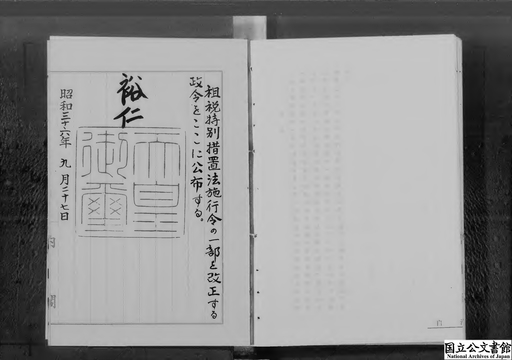 租税特別措置法施行令の一部を改正する
政令をここに公布する。
裕仁
天皇
御璽
昭和三十六年九月二十七日
国立公文書館
National Archives of Japan